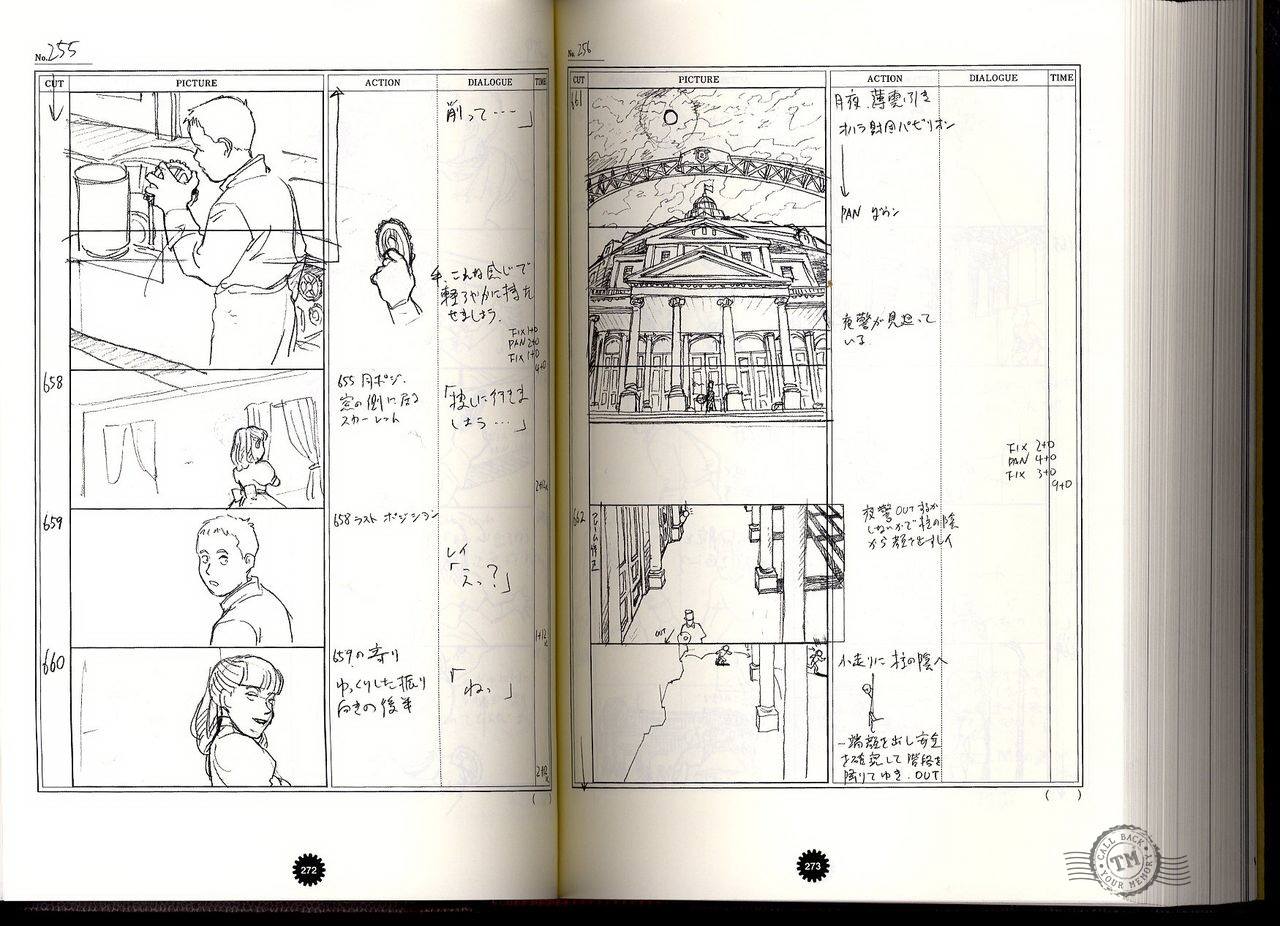 No.255
CUT PICTURE ACTION DIALOGUE TIME
削って……」
手、こんな感じで
軽ろやかに持た
せましょう。
FIX 1+0
PAN 2+0
FIX 1+0
4+0
658
655 同ポジ.
窓の側に居る
スカーレット
「探しに行きま
しょう…」
659
658 ラスト ポジション
レイ
「えっ?」
1+12
660
659の寄り
ゆっくりした振り
向きの後半
「ねっ」
2+12
272
No.256
CUT PICTURE ACTION DIALOGUE TIME
661
月夜、薄雲引き
オハラ財団パビリオン
PAN ダウン
夜警が見廻って
いる.
FIX 2+0
PAN 4+0
FIX 3+0
9+0
662
夜警OUTするか
しないかで柱の陰
から顔を出すレイ
OUT
小走りに柱の陰へ
一端顔を出し安全
を確認して階段を
降りてゆき、OUT
273
CALL BACK
TM
YOUR MEMORY